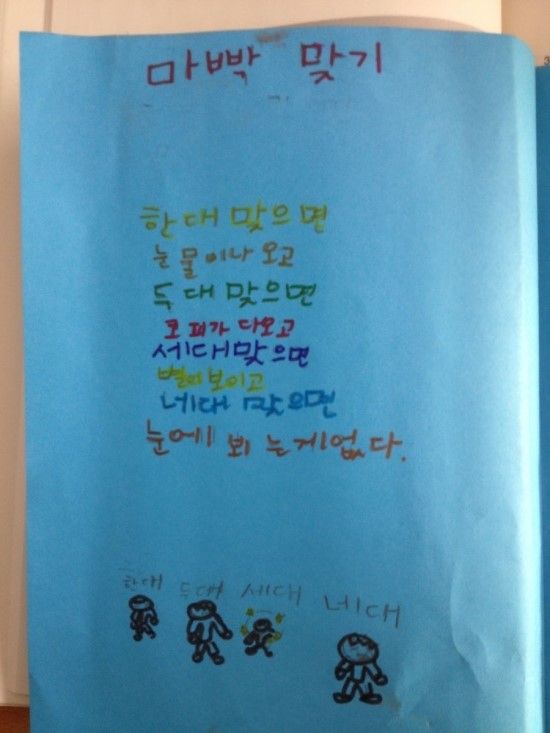 마빡 맞기
한대 맞으면
눈물이나 오고
두대 맞으면
코피가 다오고
세대맞으면
별이보이고
네대 맞으면
눈에 뵈 는게없다.
한대 두대 세대 네대